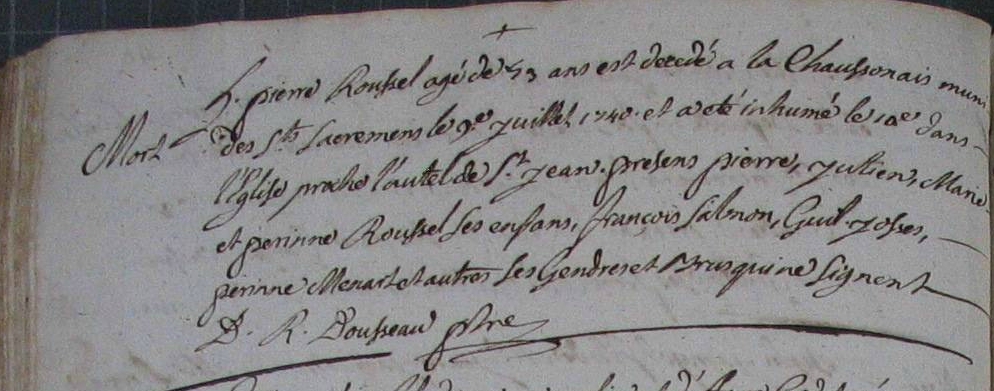 h. pierre Roussel agé de 53 ans est decedé a la Chaussonais muni
Mort des Sts Sacremens le 9e juillet 1748. et a eté inhumé le 10e dans
l'Eglise proche l'autel de St jean. presens pierre, julien, Marie
et perinne Roussel ses enfans, françois Salmon, Guil. josses,
perinne Menart et autres ses Gendres et Brus qui ne signent
D. R. Dousseau ptre